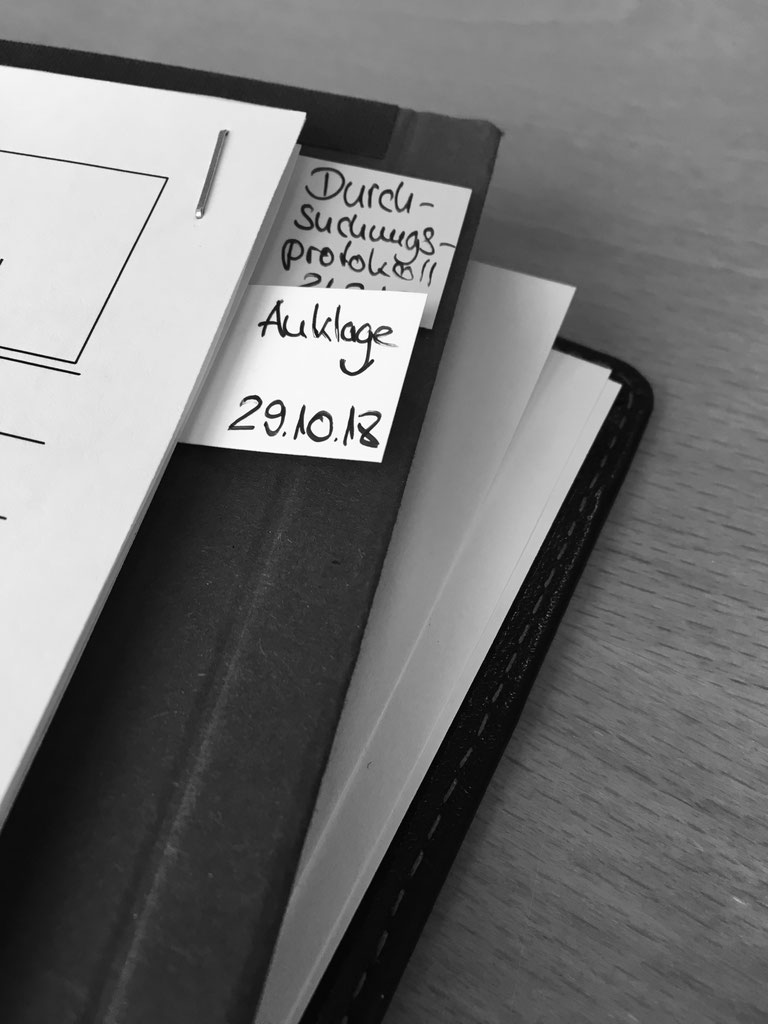 Durch-
suchungs-
protokoll
Anklage
29.10.18